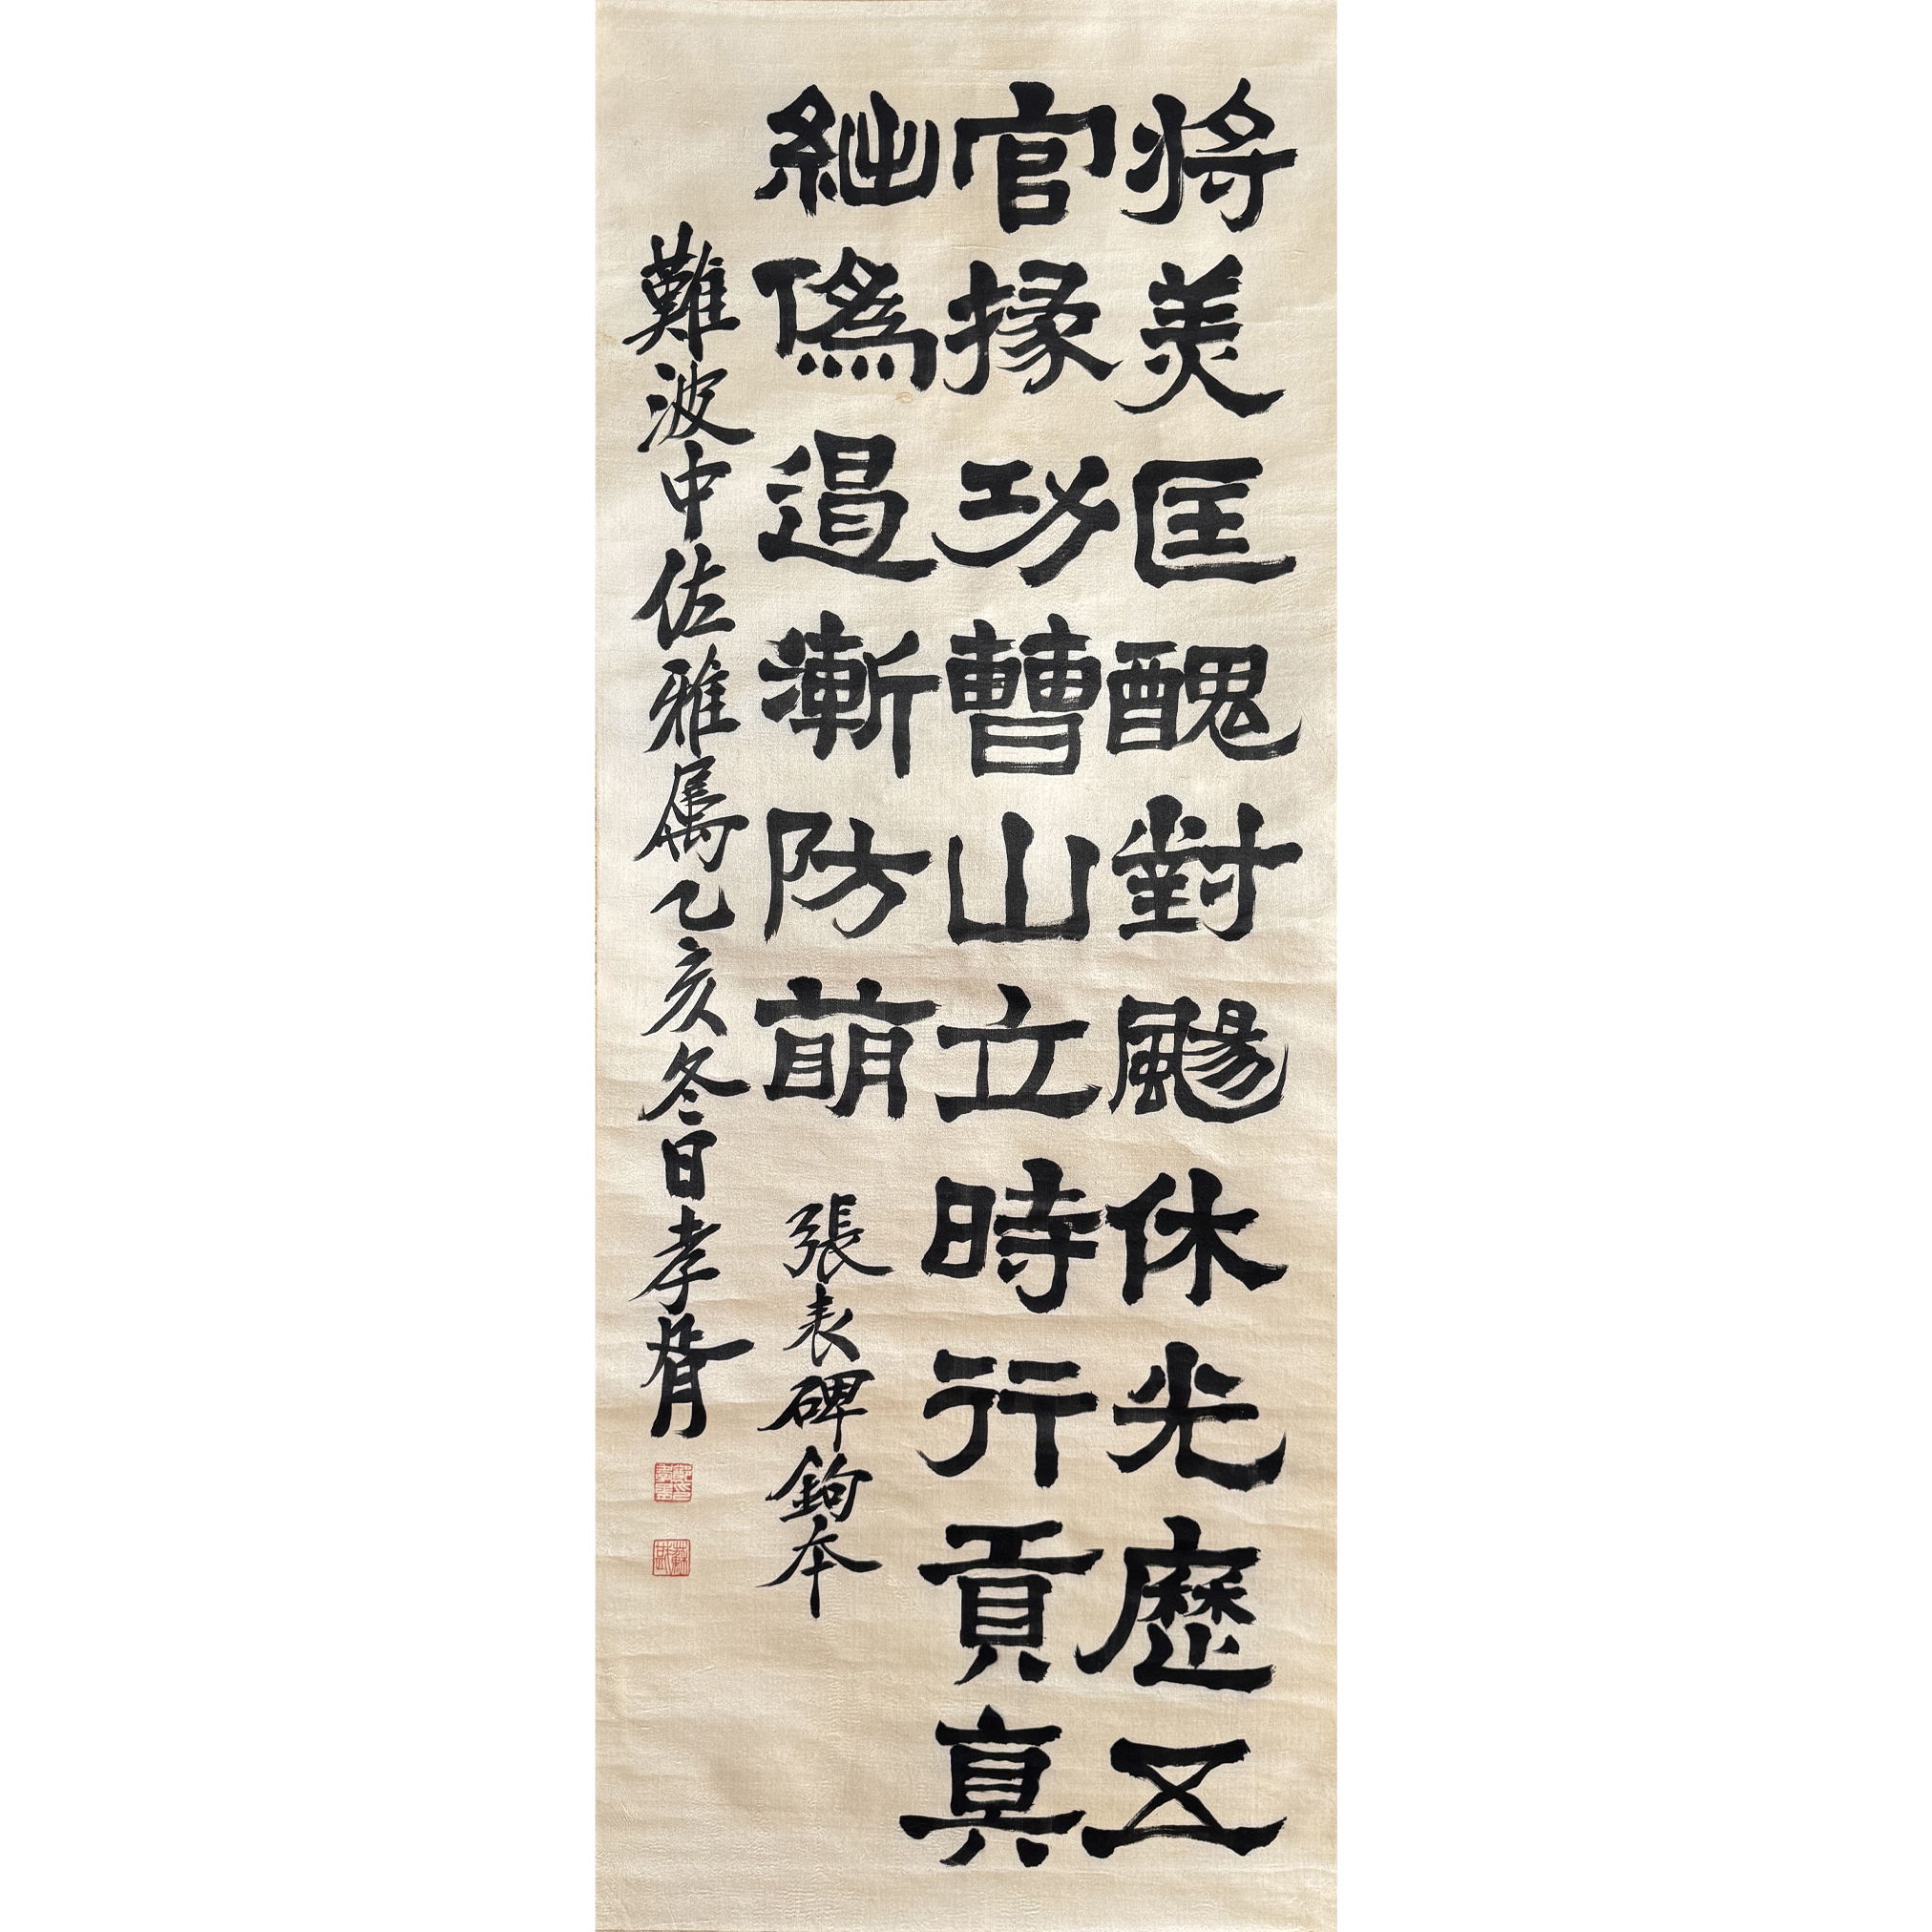 将美匡醜對颺休光歷五
官掾功曹山立時行貢真
絀偽遏漸防萌
張表碑鉤本
難波中佐雅属乙亥冬日孝胥